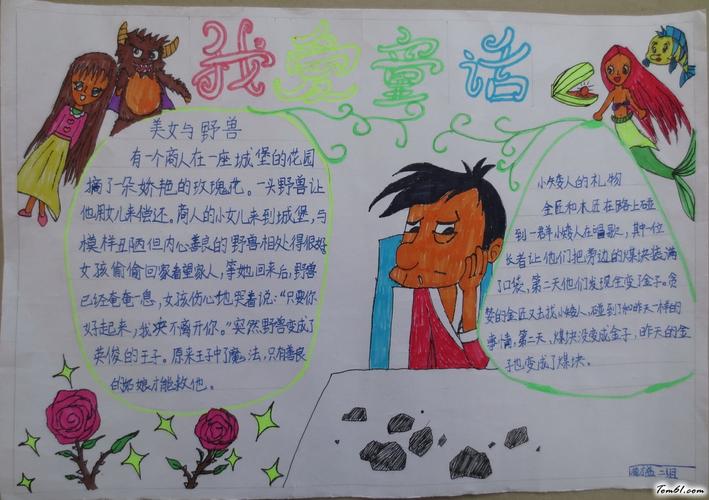 我爱童话
美女与野兽
有一个商人在一座城堡的花园
摘了一朵娇艳的玫瑰花。一头野兽让
他用女儿来偿还。商人的小女儿来到城堡,与
模样丑陋但内心善良的野兽相处得很好
女孩偷偷回家看望家人,等她回来后,野兽
已经奄奄一息,女孩伤心地哭着说:“只要你
好起来,我决不离开你。”突然野兽变成了
英俊的王子。原来王子中了魔法,只有善良
的姑娘才能救他。
小矮人的礼物
金匠和木匠在路上碰
到一群小矮人在唱歌,其中一位
长者让他们把旁边的煤块装满
了口袋,第二天他们发现它变了金子。贪
婪的金匠又去找小矮人,碰到了和昨天一样的
事情,第二天,煤块没变成金子,昨天的金
子也变成了煤块。
Tom61.com